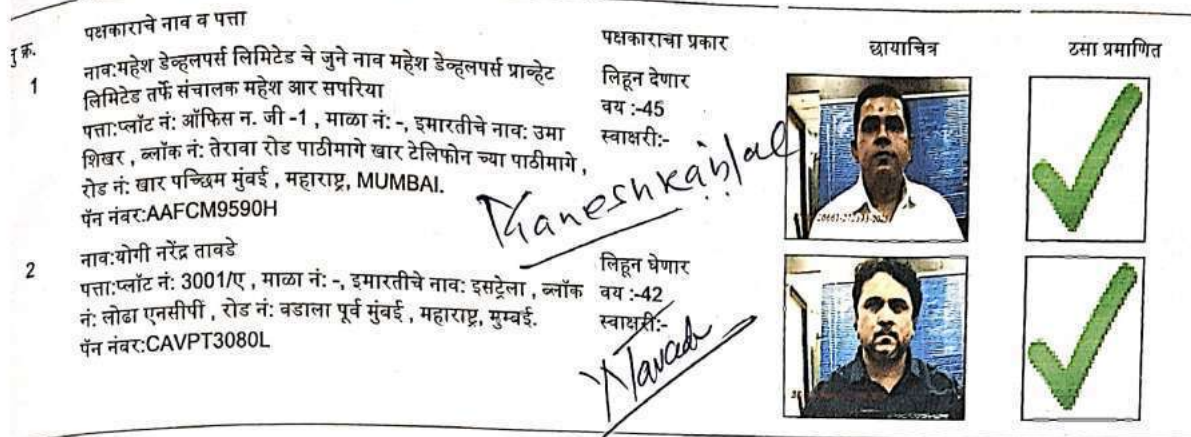 नु क्र. पक्षकाराचे नाव व पत्ता पक्षकाराचा प्रकार छायाचित्र ठसा प्रमाणित
1 नाव:महेश डेव्हलपर्स लिमिटेड चे जुने नाव महेश डेव्हलपर्स प्राव्हेट
लिमिटेड तर्फे संचालक महेश आर सपरिया
पत्ता:प्लॉट नं: ऑफिस न. जी -1 , माळा नं: -, इमारतीचे नाव: उमा
शिखर , ब्लॉक नं: तेरावा रोड पाठीमागे खार टेलिफोन च्या पाठीमागे ,
रोड नं: खार पच्छिम मुंबई , महाराष्ट्र, MUMBAI.
पॅन नंबर:AAFCM9590H
लिहून देणार
वय :-45
स्वाक्षरी:-
2 नाव:योगी नरेंद्र तावडे
पत्ता:प्लॉट नं: 3001/ए , माळा नं: -, इमारतीचे नाव: इसट्रेला , ब्लॉक
नं: लोढा एनसीपीं , रोड नं: वडाला पूर्व मुंबई , महाराष्ट्र, मुम्बई.
पॅन नंबर:CAVPT3080L
लिहून घेणार
वय :-42
स्वाक्षरी:-